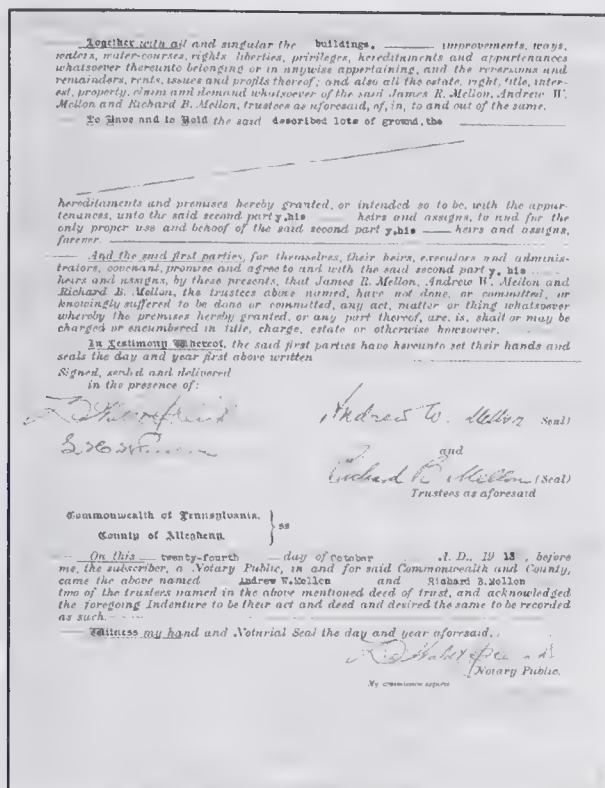 Together with all and singular the buildings, improvements, ways,
waters, water-courses, rights liberties, privileges, hereditaments and appurtenances
whatsoever thereunto belonging or in anywise appertaining, and the reversions and
remainders, rents, issues and profits thereof; and also all the estate, right, title, inter-
est, property, claim and demand whatsoever of the said James R. Mellon, Andrew W.
Mellon and Richard B. Mellon, trustees as aforesaid, of, in, to and out of the same.
To Have and to Hold the said described lots of ground, the
hereditaments and premises hereby granted, or intended so to be, with the appur-
tenances, unto the said second party, his heirs and assigns, to and for the
only proper use and behoof of the said second party, his heirs and assigns,
forever.
And the said first parties, for themselves, their heirs, executors and adminis-
trators, covenant, promise and agree to and with the said second party, his
heirs and assigns, by these presents, that James R. Mellon, Andrew W. Mellon and
Richard B. Mellon, the trustees above named, have not done, or committed, or
knowingly suffered to be done or committed, any act, matter or thing whatsoever
whereby the premises hereby granted, or any part thereof, are, is, shall or may be
charged or encumbered in title, charge, estate or otherwise howsoever.
In Testimony Whereof, the said first parties have hereunto set their hands and
seals the day and year first above written
Signed, sealed and delivered
in the presence of:
Andrew W. Mellon Seal)
and
Richard B. Mellon (Seal)
Trustees as aforesaid
Commonwealth of Pennsylvania,
County of Allegheny } ss
On this twenty-fourth day of October A. D., 1913, before
me, the subscriber, a Notary Public, in and for said Commonwealth and County,
came the above named Andrew W. Mellon and Richard B. Mellon
two of the trustees named in the above mentioned deed of trust, and acknowledged
the foregoing Indenture to be their act and deed and desired the same to be recorded
as such.
Witness my hand and Notarial Seal the day and year aforesaid.
Notary Public.
My commission expires